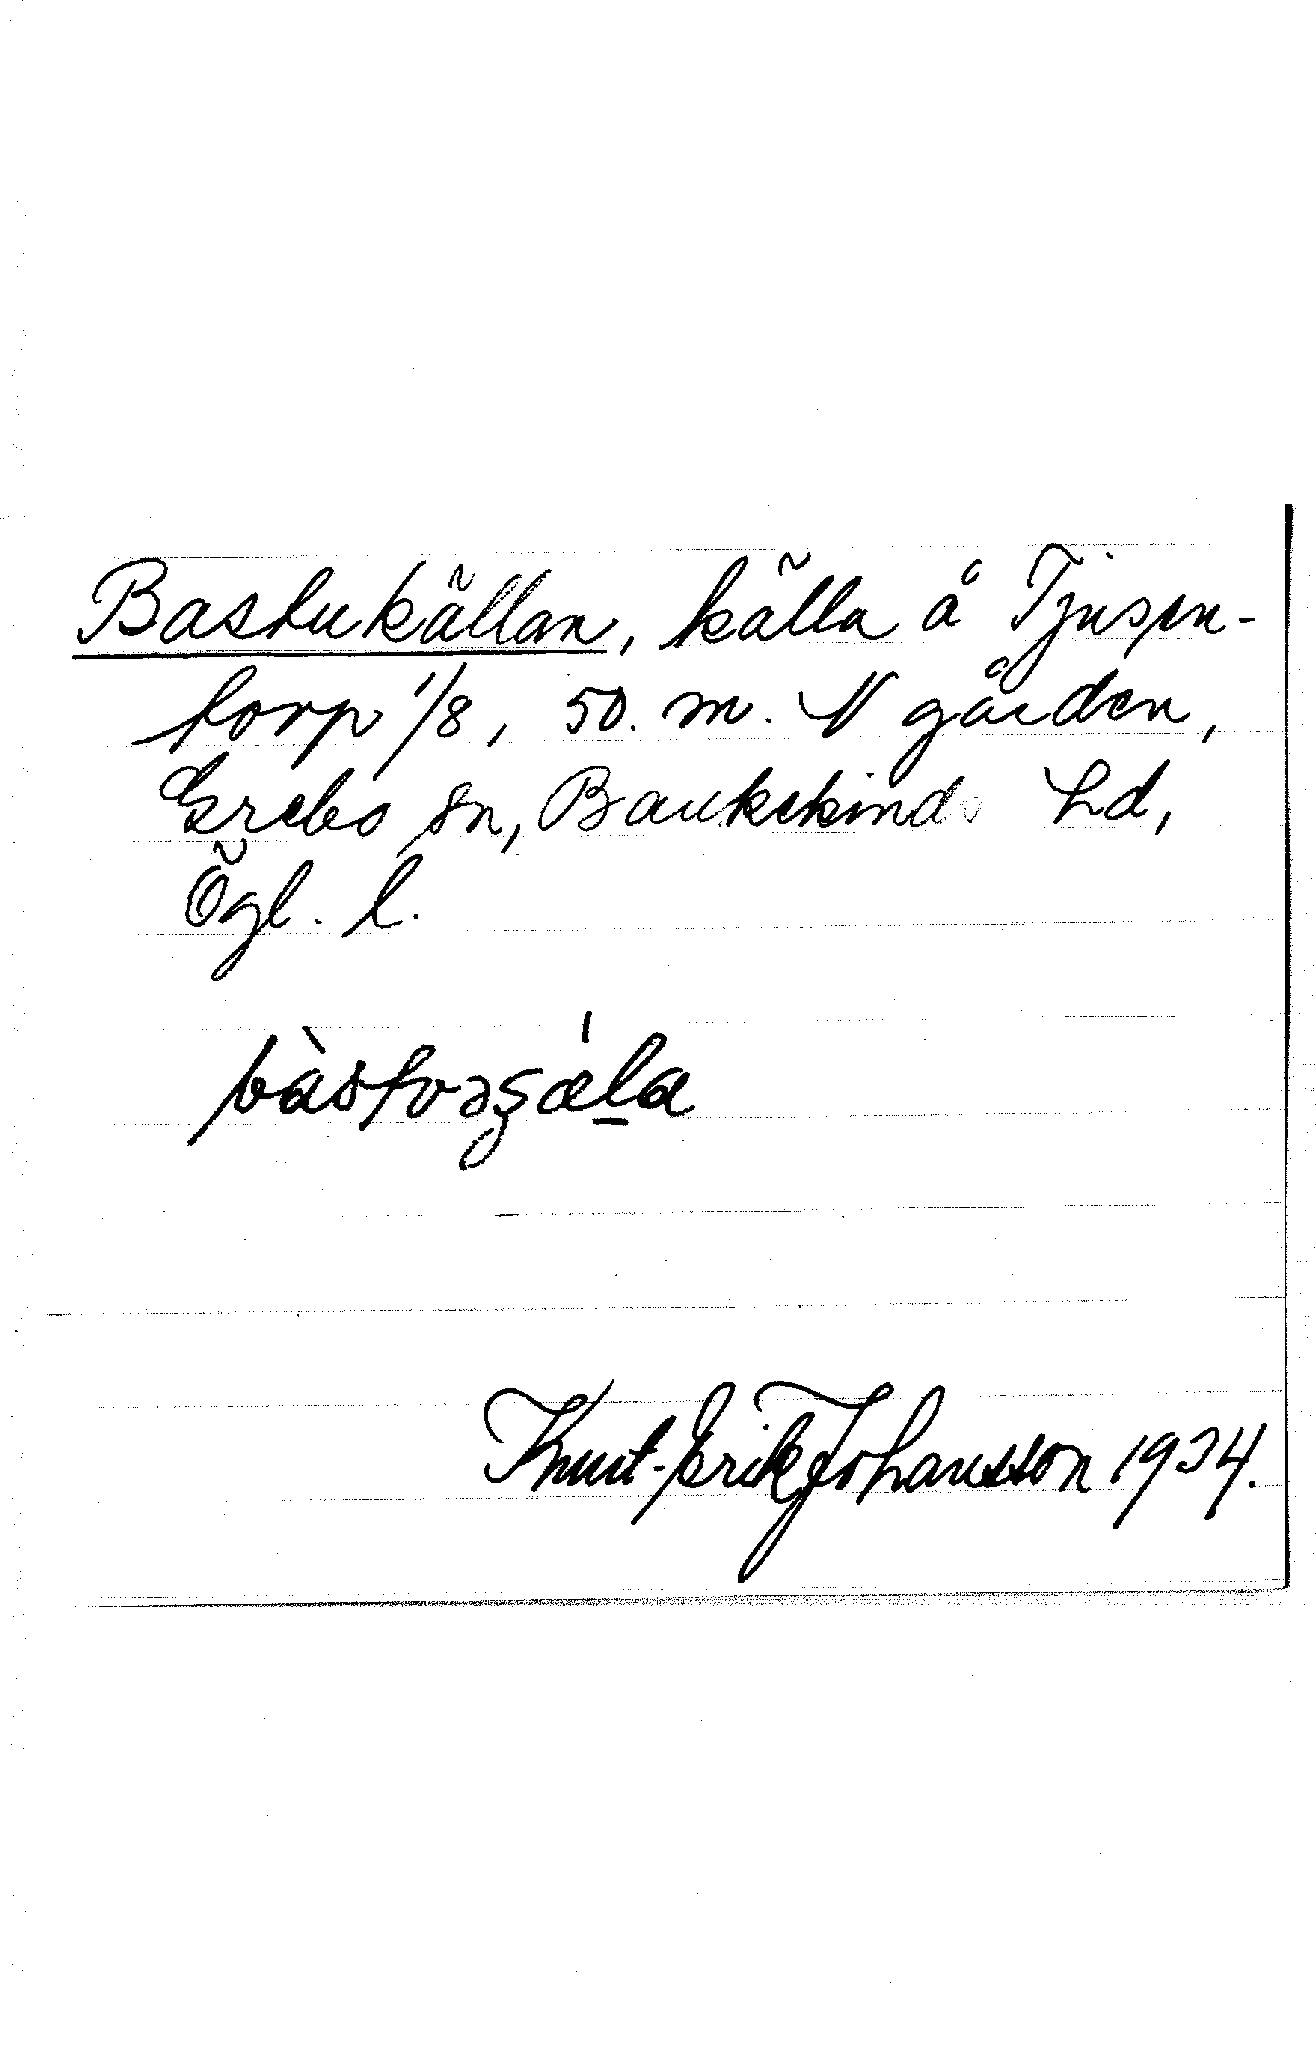 Bastukällan, källa å Tjusen-
torp 1/8, 50. m. N gården,
Grebo sn, Bankekinds hd,
Ögl. l.
Knut-Erik Johansson 1934.